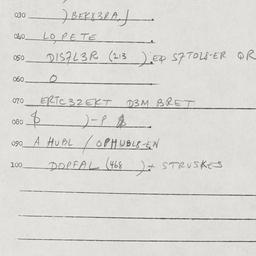 030 ) BEK83RA.J
040 LO, PETE
050 DIS7L3R (213 ) EQ S7TOLS-ER OR
060 O
070 ERTC32EKT D3M BRET
080 )-P
090 A HUAL / OPHUBLS-EN
100 DOPFAL (468 )+ STRUSKES